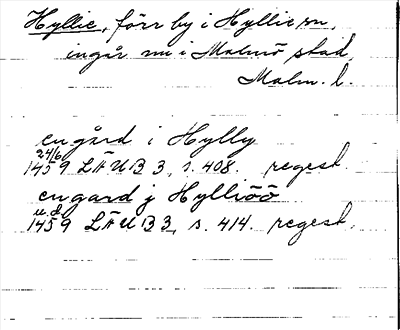 Hyllie, förr by i Hyllie sn,
ingår nu i Malmö stad,
Malm. l.
en gård i Hylly
24/6
1459 LÄUB 3, s. 408. regest.
en gard j Hylliöö
u.d.
1459 LÄUB 3, s. 414. regest.